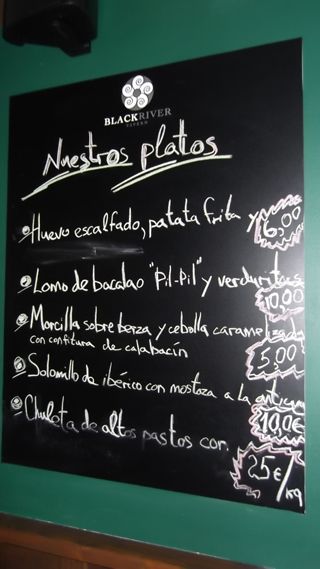 BLACKRIVER
TAVERN
Nuestros platos
Huevo escalfado, patata frita y
6,00
Lomo de bacalao "Pil-Pil" y verduritas
10,00
Morcilla sobre berza y cebolla caramelizada
con confitura de calabacín
5,00
Solomillo de ibérico con mostaza a la antigua
10,0€
Chuleta de altos pastos con
25€/Kg